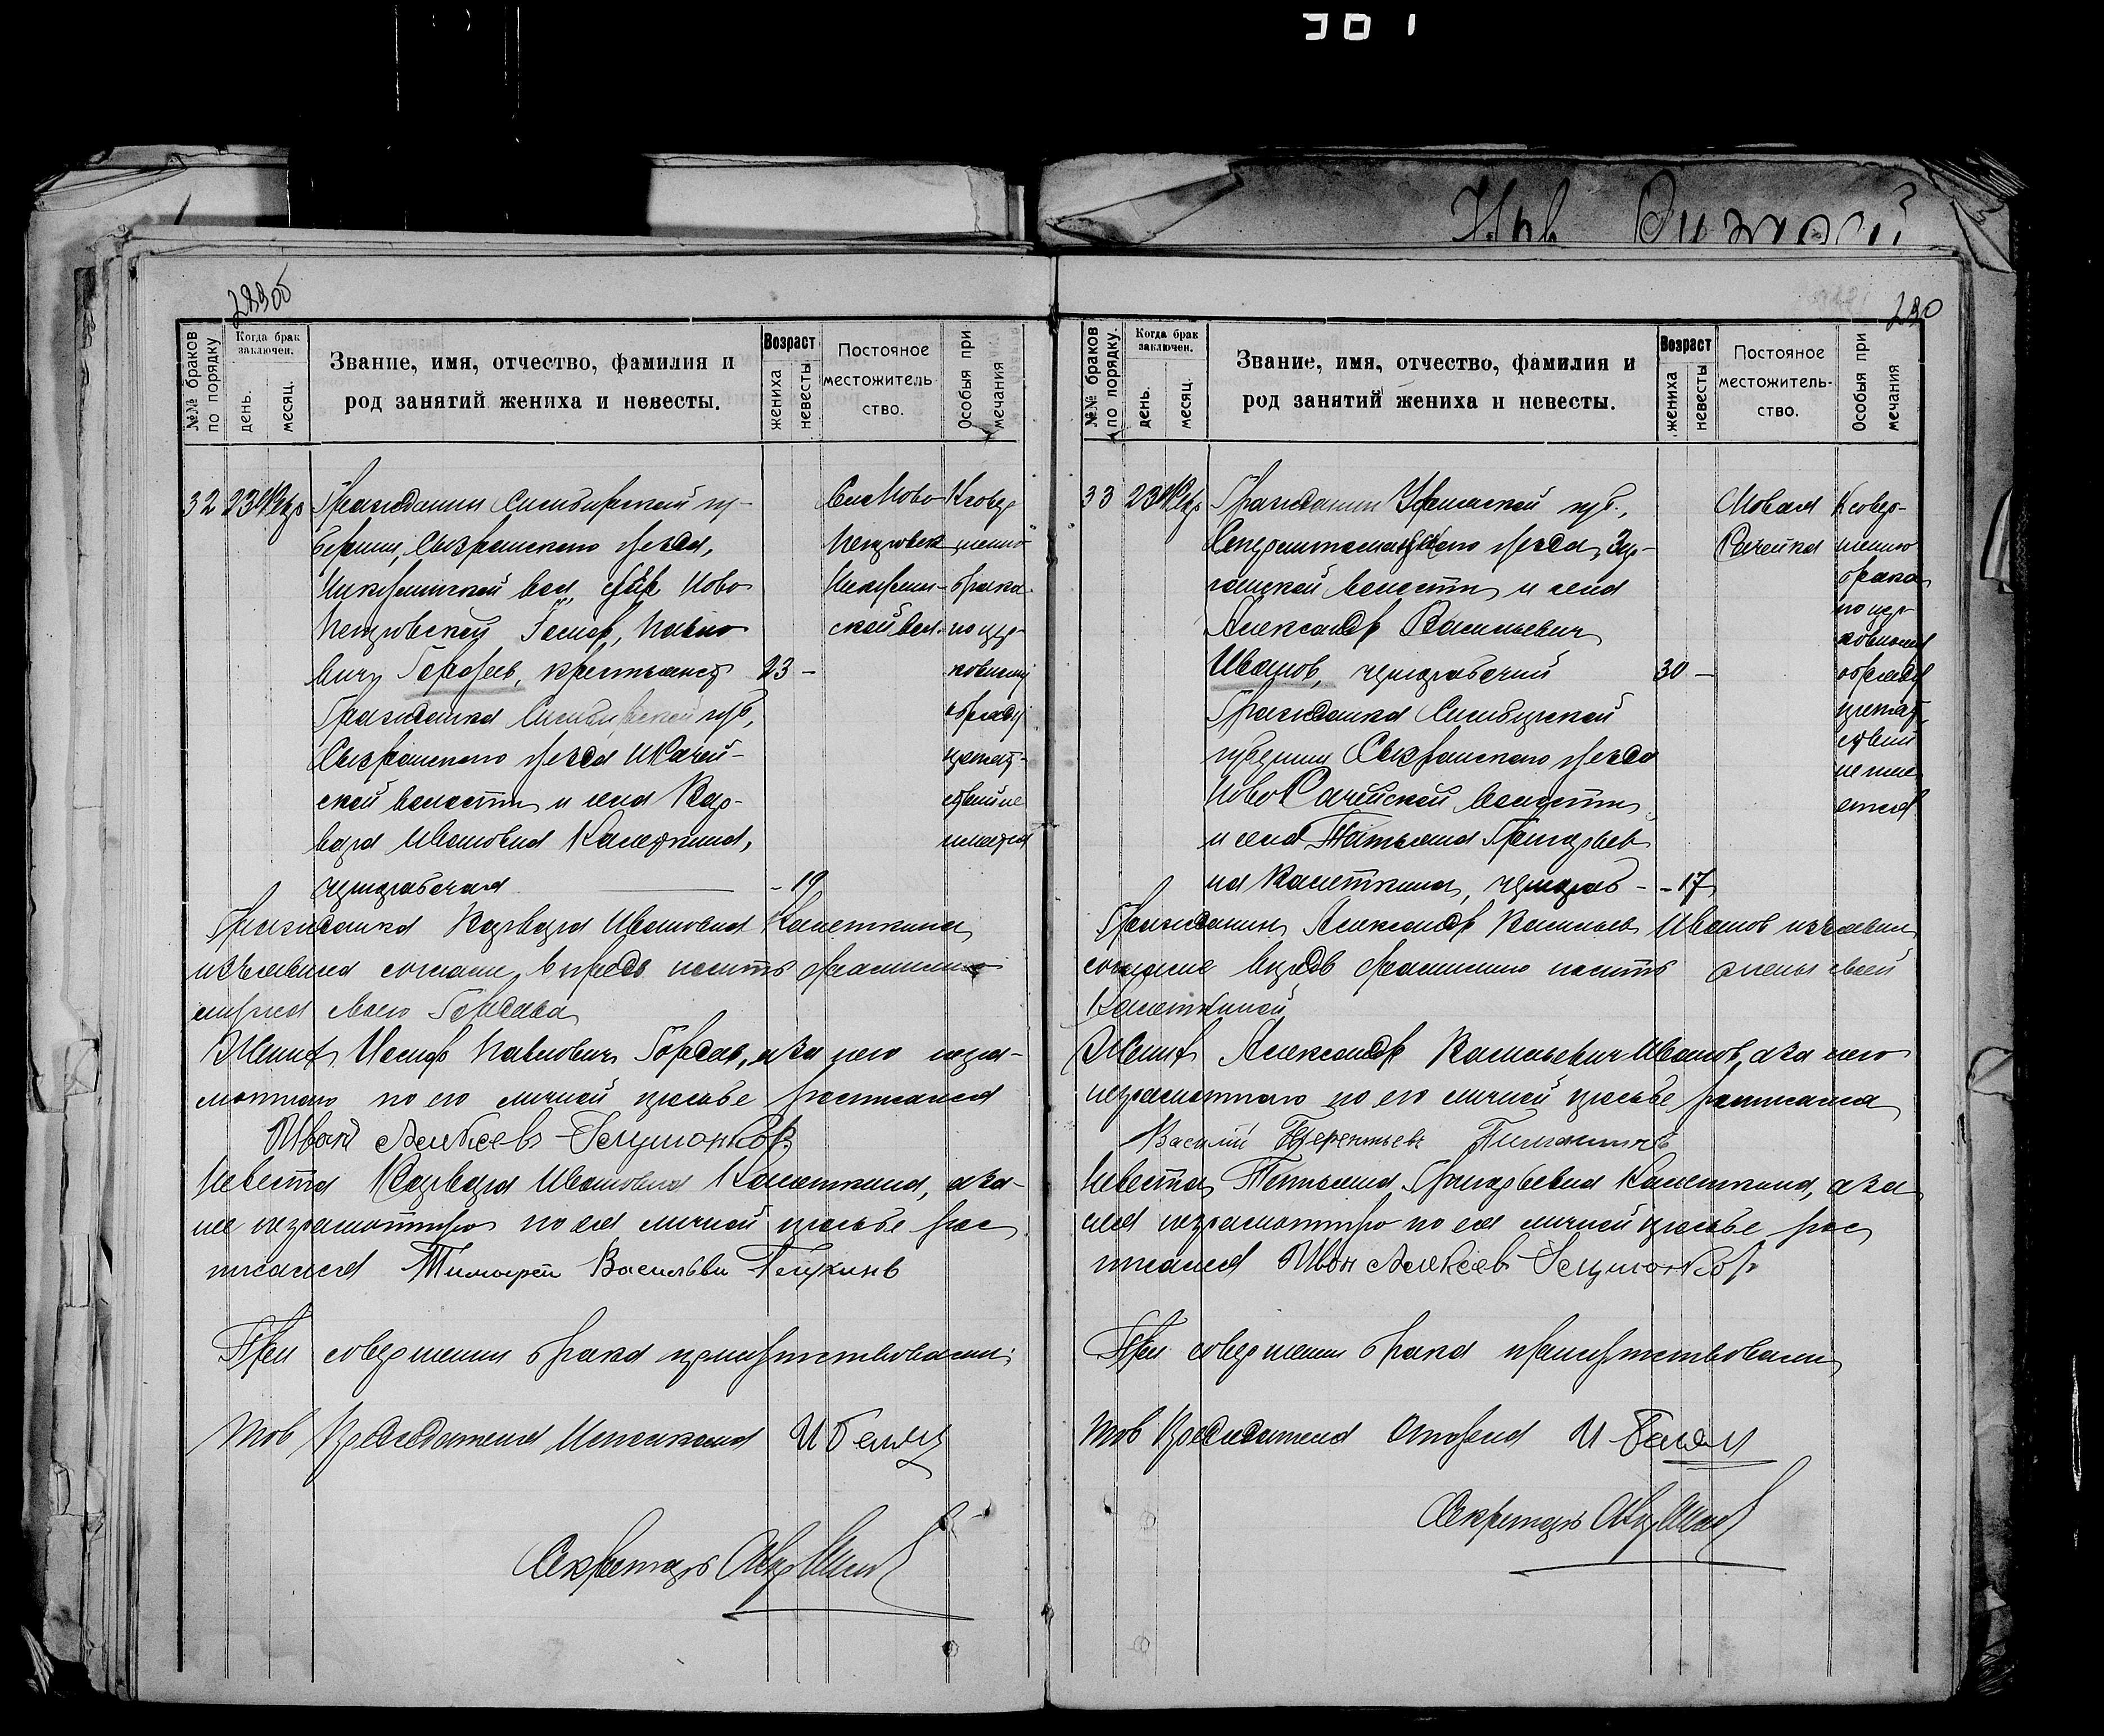 301
229 об
№№ браков по порядку
Когда брак заключен.
день.
месяц.
Звание, имя, отчество, фамилия и
род занятий жениха и невесты.
Возраст
жениха
невесты
Постояное
местожитель
ство.
Особыя при
мечания
32 23
Гражданин Симбирской гу-
бернии, Сызранского уезда,
вол,
Ново
Петровской Иосиф, Павло
вич Гордеев, крестьянст 23 -
Гражданка Симбирской губ,
Сызранского уезда
ской волости и села Вар-
вара Ивановна Канеткина,
чернорабочая - 19
Село Ново
Петровск
ской вол.
К совер
шению
брака
по цер-
ковному
обряду
препят-
ствий не
имеется
Гражданка Варвара Ивановна Канеткина
изъявила согласие впредь носить фамилию
мужа своего Гордеева
Жених Иосиф Павлович Гордеев, а за него негра-
мотного по его личной просьбе расписался
Иван Алексеев
Невеста Варвара Ивановна Канеткина, а за
нее неграмотную по ея личной просьбе рас
писался Тимофей Васильев
При совершении брака присутствовали:
Тов Председателя Исполкома И
Секретарь
230
№№ браков по порядку.
Когда брак заключен.
день.
месяц.
Звание, имя, отчество, фамилия и
род занятий жениха и невесты.
Возраст
жениха
невесты
Постояное
местожитель-
ство.
Особыя при
мечания
33 23
Гражданин Уфимской губ.,
Стерлитамакского уезда, Зир-
ганской волости и села
Александр Васильевич
Иванов, чернорабочий 30 -
Гражданка Симбирской
губернии Сызранского уезда
Ново Рачейской волости
и села Татьяна Григорьев
на Канеткина, чернораб - - 17
Новая
Рачейка
К совер-
шению
брака
по цер-
ковному
обряду
препят
ствий
не име
ется
Гражданин Александр Васильев Иванов изъявил
согласие впредь фамилию носить жены своей
Канеткиной
Жених Александр Васильевич Иванов, а за него
неграмотного по его личной просьбе расписался
Василий Терентьев
Невеста Татьяна Григорьевна Канеткина, а за
нея неграмотную по ея личной просьбе рас
писался Иван Алексеев
При совершении брака присутствовали
Тов Председателя Отдела И
Секретарь